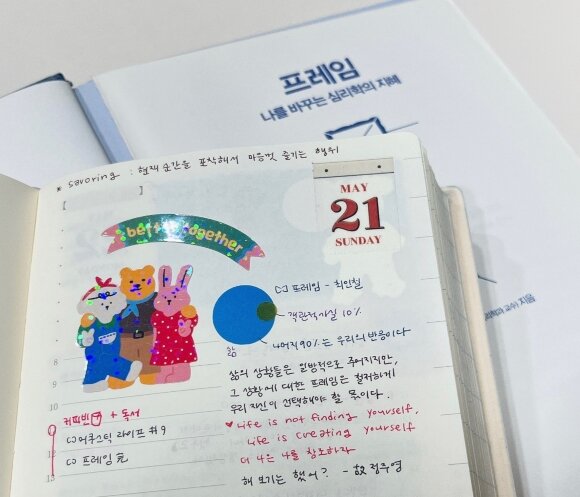 프레임
나를 바꾸는 심리학의 지혜
* savoring : 현재 순간을 포착해서 마음껏 즐기는 행위
[ ]
better together
MAY
21
SUNDAY
프레임 - 최인철
객관적사실 10%
나머지 90%는 우리의 반응이다
삶
삶의 상황들은 일방적으로 주어지지만,
그 상황에 대한 프레임은 철저하게
우리 자신이 선택해야 할 몫이다.
♥ Life is not finding yourself,
Life is creating yourself
더 나은 나를 창조하자
해 보기는 했어? - 故 정주영
8
9
10
커피빈 + 독서
어쿠스틱 라이프 #9
프레임 完
12
13
교수) 지음